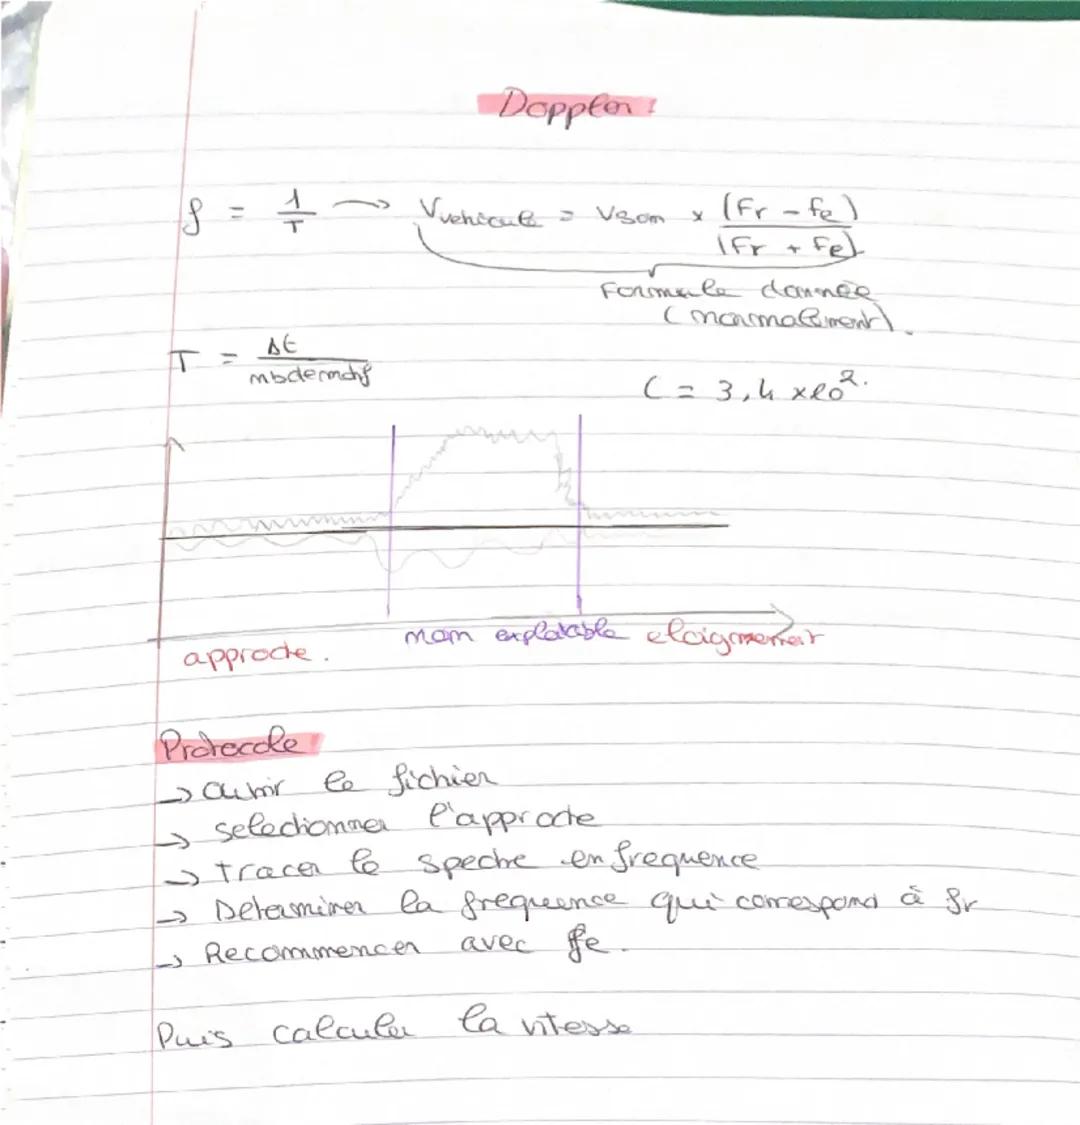 Doppler :
f = 1/T → Vvehicule = Vson × (Fr - fe)/(Fr + Fe)
Formule donnée
(normalement).
T = Δt/nbdemotif
C = 3,4 x10².
approche.
non exploitable eloignement
Protocole
→ ouvrir le fichier
→ selectionner l'approche
→ tracer le spectre en frequence
→ Determiner la frequence qui correspond à fr
→ Recommencer avec fe.
Puis calculer la vitesse